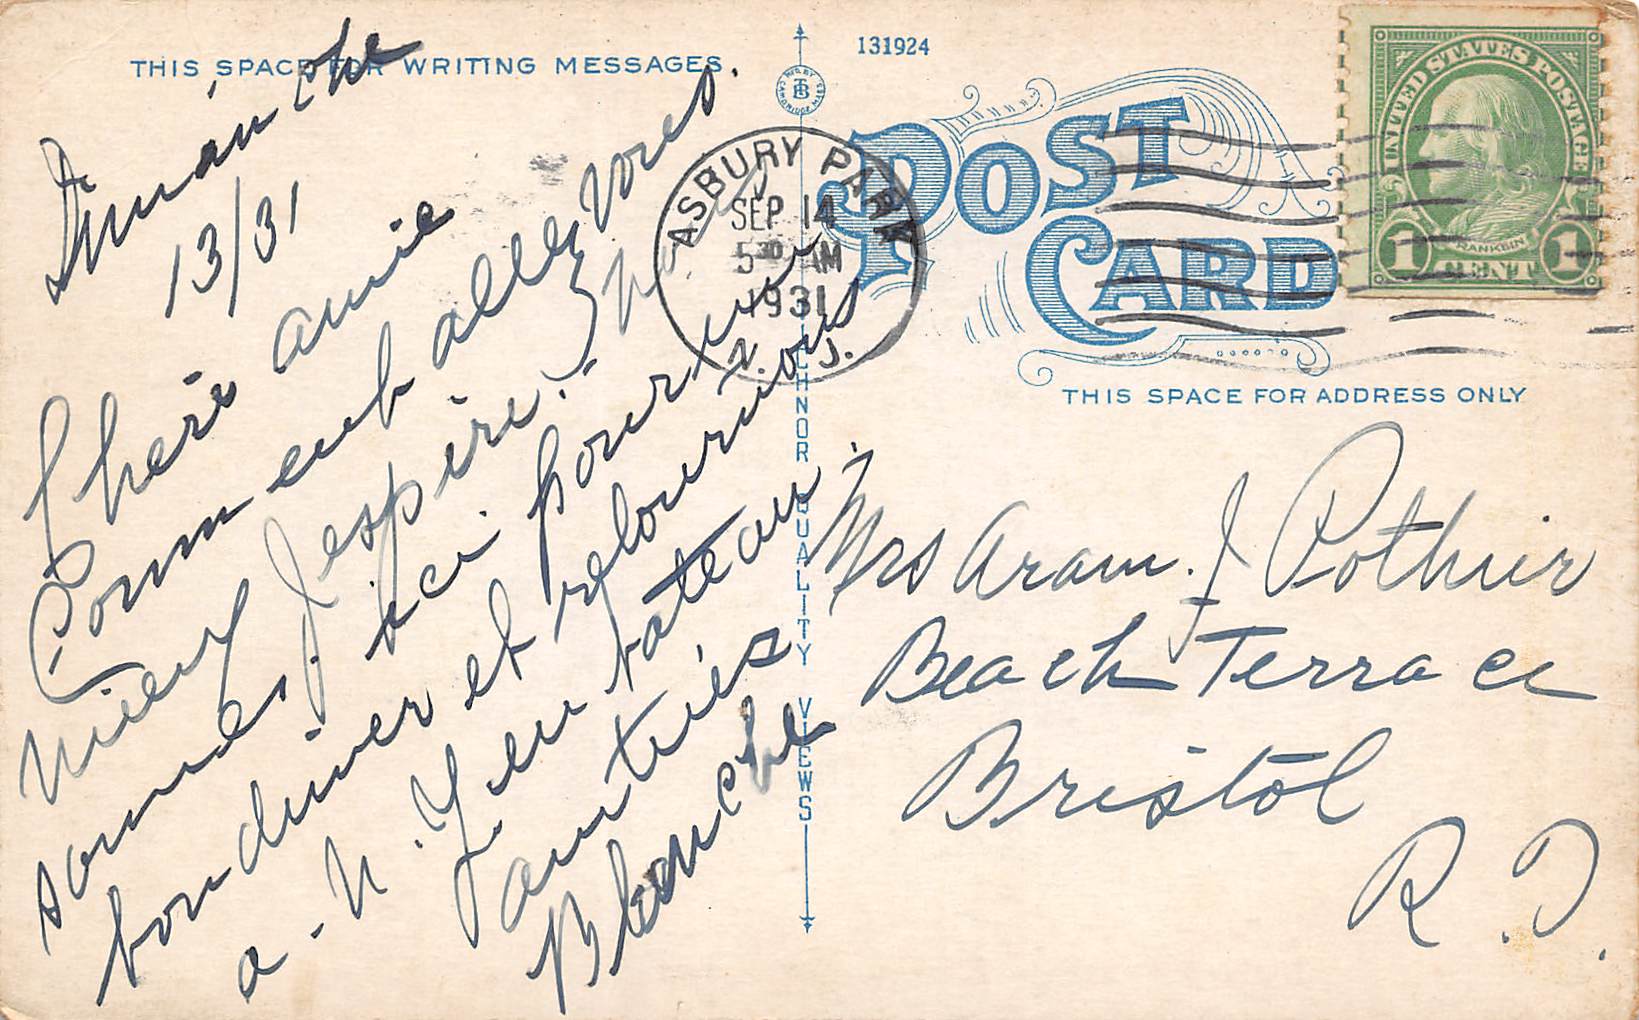 THIS SPACE FOR WRITING MESSAGES.
Dimanche
13/31
Chère amie
Comment allez vous
mieux J'espère. Nous
sommes ici pour un
bon diner et retournous
a. N. Y. en bateau.
amitiés
Blanche
131924
MFG. BY
TB
CAMBRIDGE MASS
TICHNOR QUALITY VIEWS
POST
CARD
ASBURY PARK
SEP 14
5 30 AM
1931
N. J.
UNITED STATES POSTAGE
FRANKLIN
1 CENT 1
THIS SPACE FOR ADDRESS ONLY
Mrs Aram. J Pothier
Beach Terrace
Bristol
R. I.